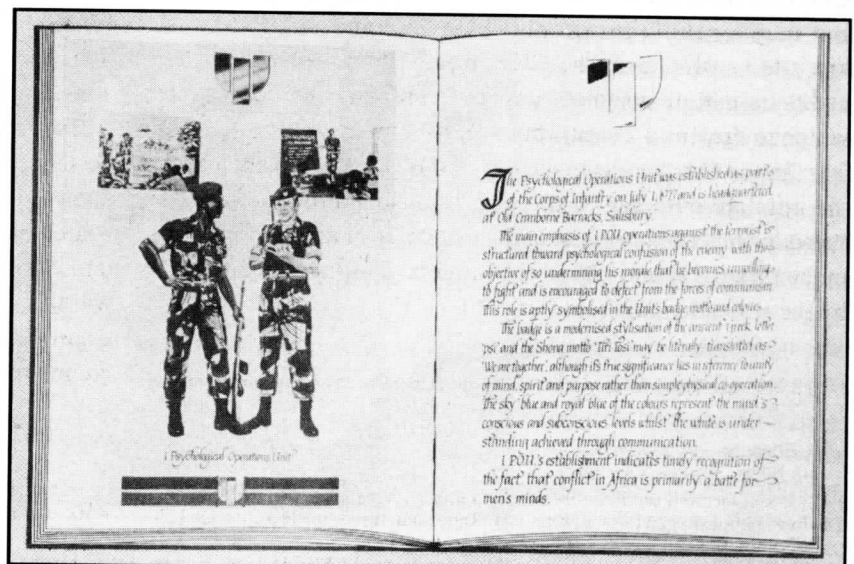 1 Psychological Operations Unit
The Psychological Operations Unit was established as part
of the Corps of Infantry on July 1, 1977 and is headquartered
at Old Cranborne Barracks, Salisbury.
The main emphasis of 1 POU operations against the terrorist is
structured toward psychological confusion of the enemy with the
objective of so undermining his morale that he becomes unwilling
to fight and is encouraged to defect from the forces of communism.
This role is aptly symbolised in the Units badge motto and colours.
The badge is a modernised stylisation of the ancient Greek letter
psi and the Shona motto 'Tiri Tose' may be literally translated as
'We are together', although its true significance lies in reference to unity
of mind, spirit and purpose rather than simple physical co-operation.
The sky blue and royal blue of the colours represent the mind's
conscious and subconscious levels whilst the white is under-
standing achieved through communication.
1 POU's establishment indicates timely recognition of
the fact that conflict in Africa is primarily a battle for
men's minds.